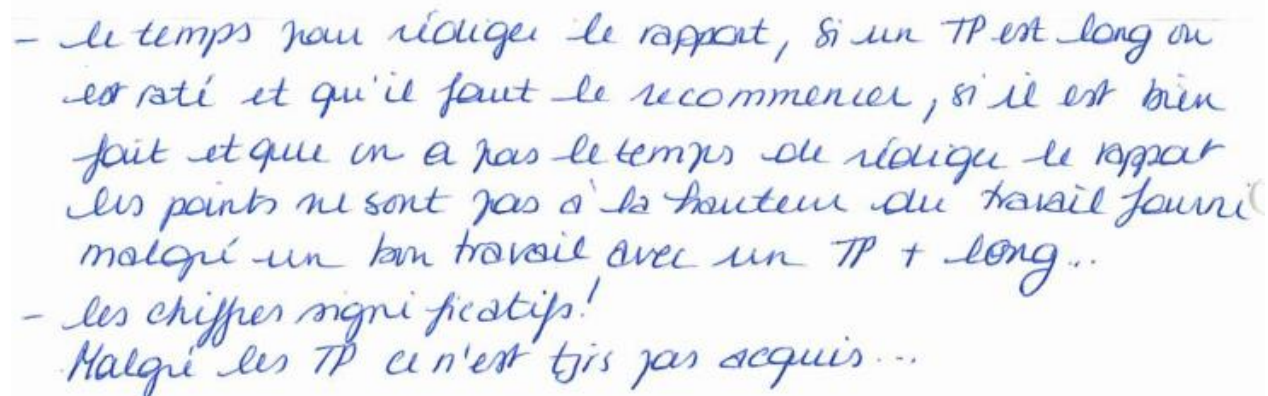 - le temps pour rédiger le rapport, si un TP est long ou
est raté et qu'il faut le recommencer, si il est bien
fait et que on a pas le temps de rédiger le rapport
les points ne sont pas à la hauteur du travail fourni
malgré un bon travail avec un TP + long...
- les chiffres significatifs!
Malgré les TP ce n'est tjrs pas acquis...